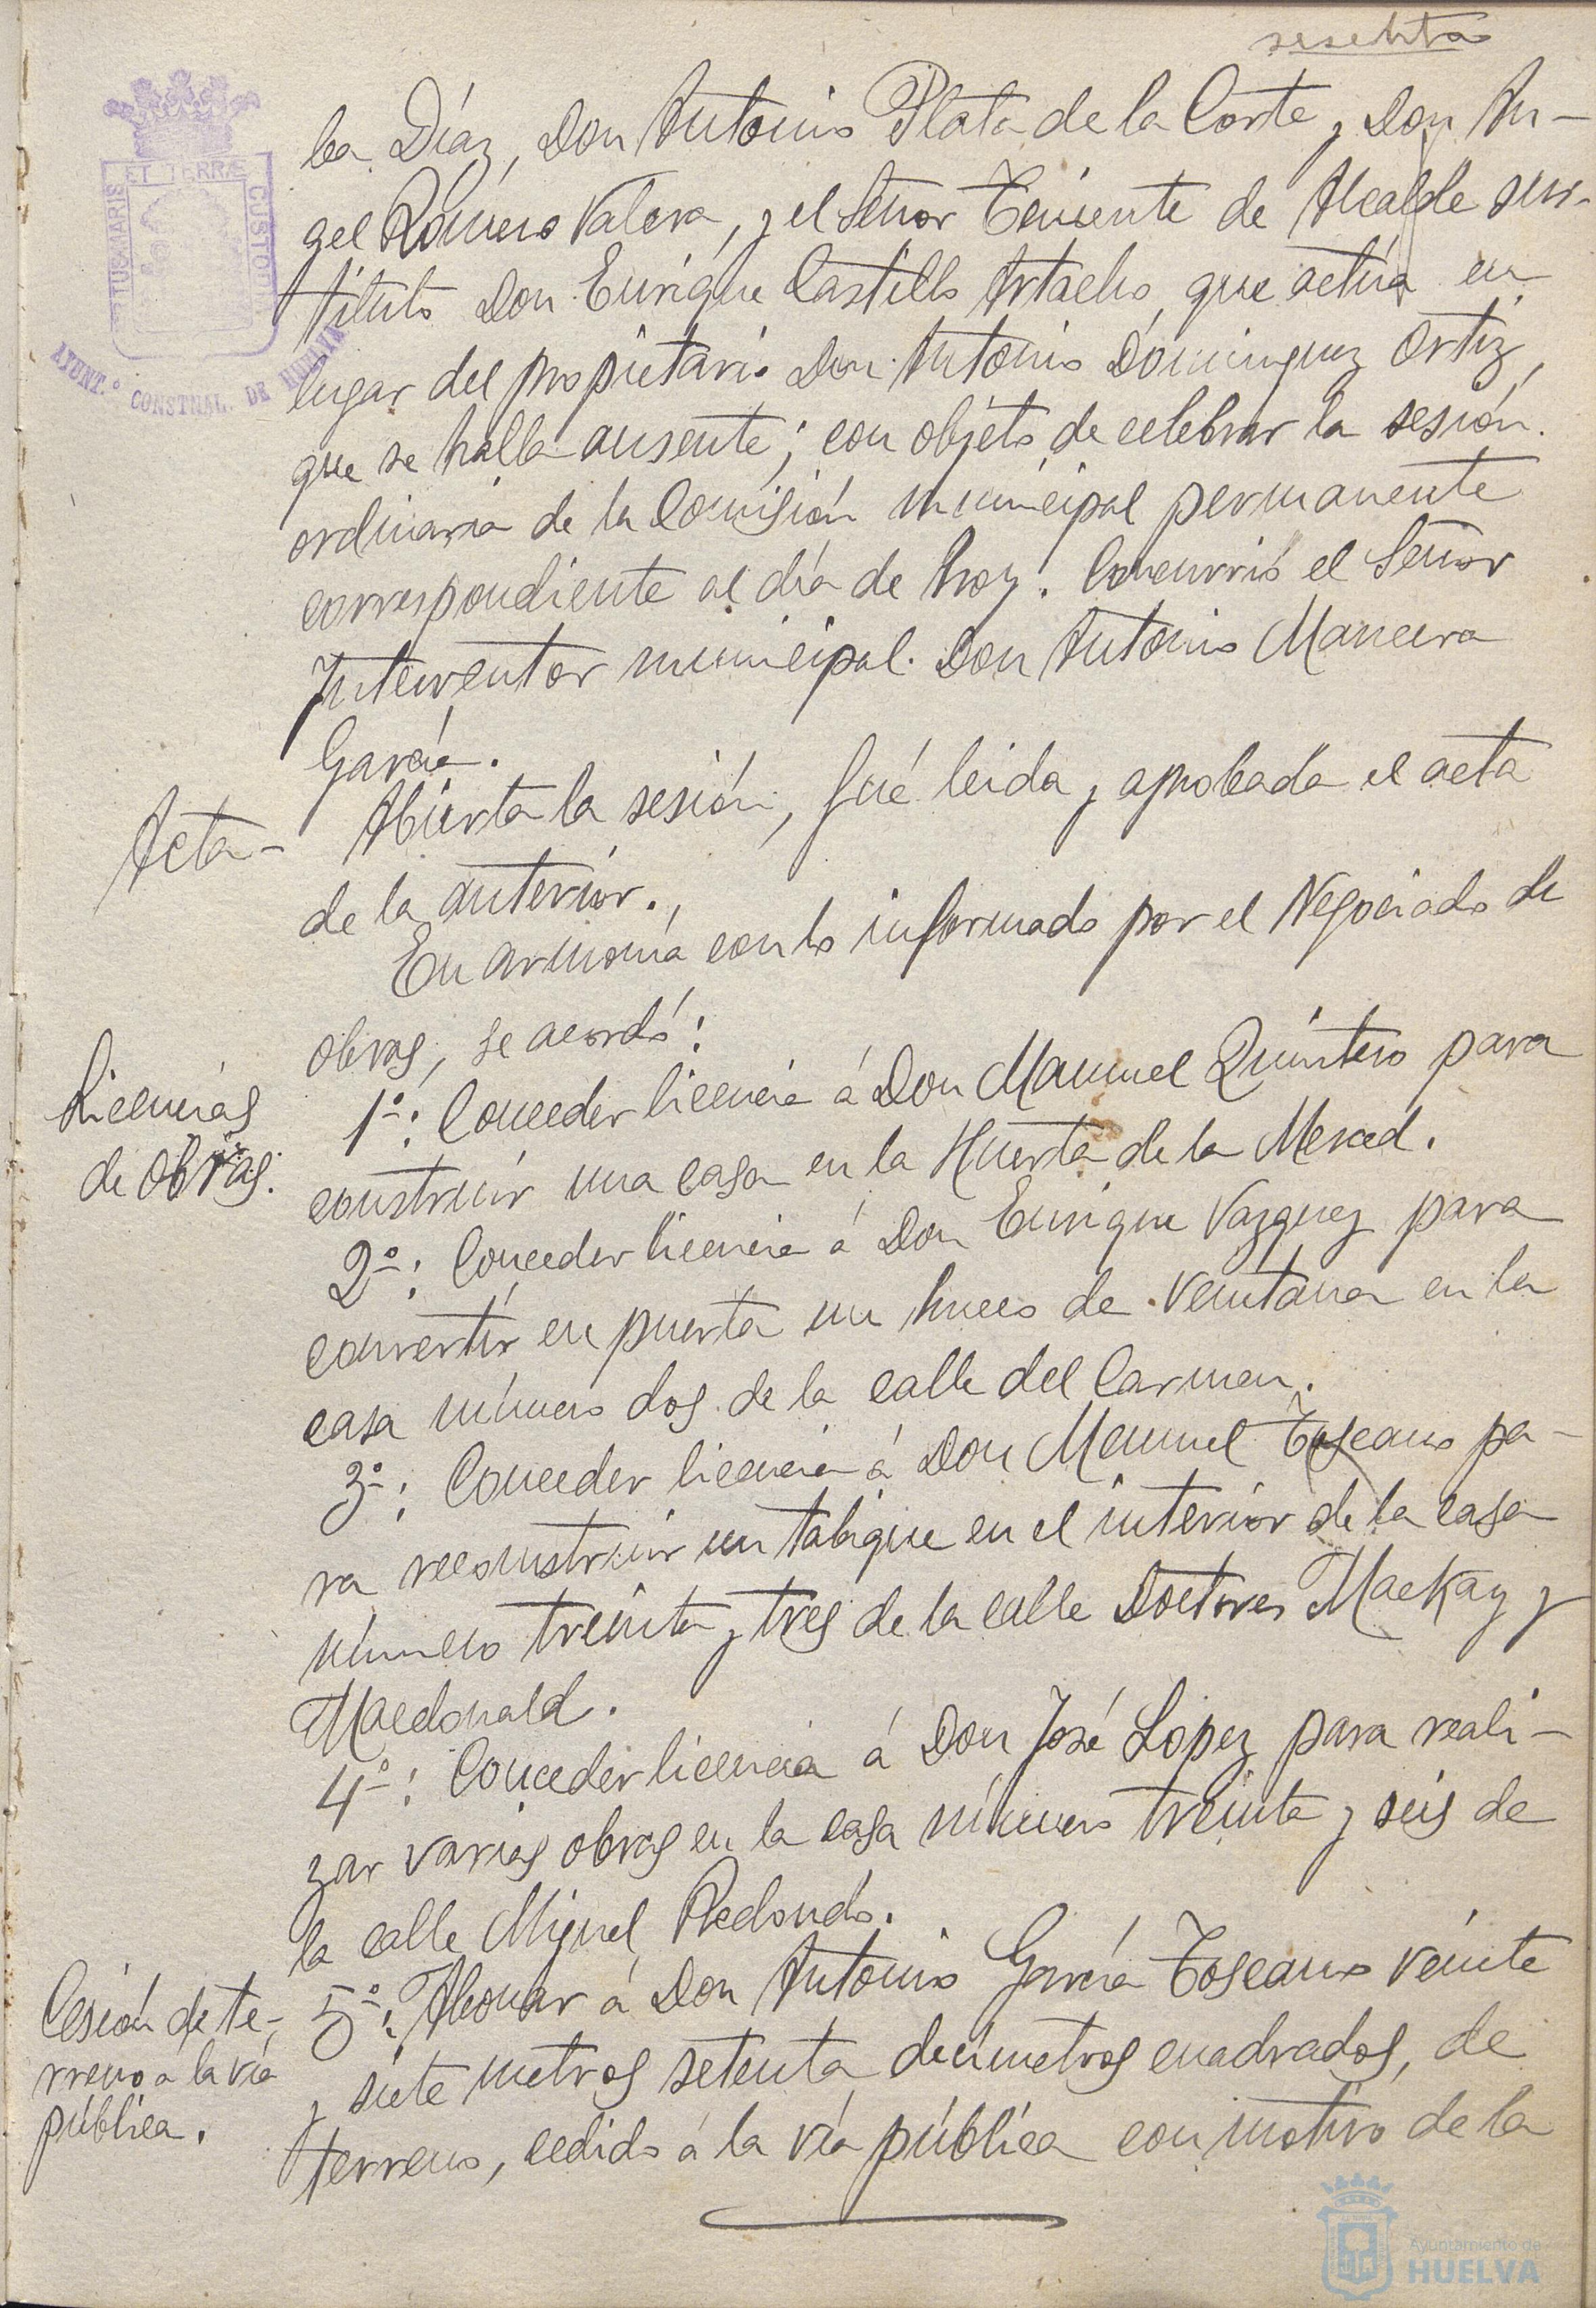 sesenta
ba Díaz, Don Antonio Plata de la Corte y Don An-
gel Romero Valera, y el Señor Teniente de Alcalde sus-
tituto Don Enrique Castillo Artacho, que actúa en
lugar del propietario Don Antonio Dominguez Ortiz,
que se halla ausente; con objeto de celebrar la sesión
ordinaria de la Comisión municipal permanente
correspondiente al día de hoy. Concurrió el Señor
Interventor municipal Don Antonio Mancera
García.
Acta-
Abierta la sesión, fué leida y aprobada el acta
de la anterior.
En armonía con lo informado por el Negociado de
obras, se acordó:
Licencias
de obras.
1º: Conceder licencia á Don Manuel Quintero para
construir una casa en la Huerta de la Merced.
2º: Conceder licencia á Don Enrique Vazquez para
convertir en puerta un hueco de ventana en la
casa número dos de la calle del Carmen.
3º: Conceder licencia á Don Manuel Toscano pa-
ra reconstruir un tabique en el interior de la casa
número treinta y tres de la calle Doctores Mackay y
Macdonald.
4º: Conceder licencia á Don José Lopez para reali-
zar varias obras en la casa número treinta y seis de
la calle Miguel Redondo.
Cesión de te-
rreno a la vía
pública.
5º: Abonar á Don Antonio García Toscano veinte
y siete metros setenta decímetros cuadrados, de
terreno, cedido á la vía pública con motivo de la
PORTUS MARIS ET TERRÆ CUSTODIA
AYUNT.º CONSTNAL. DE HUELVA
Ayuntamiento de
HUELVA